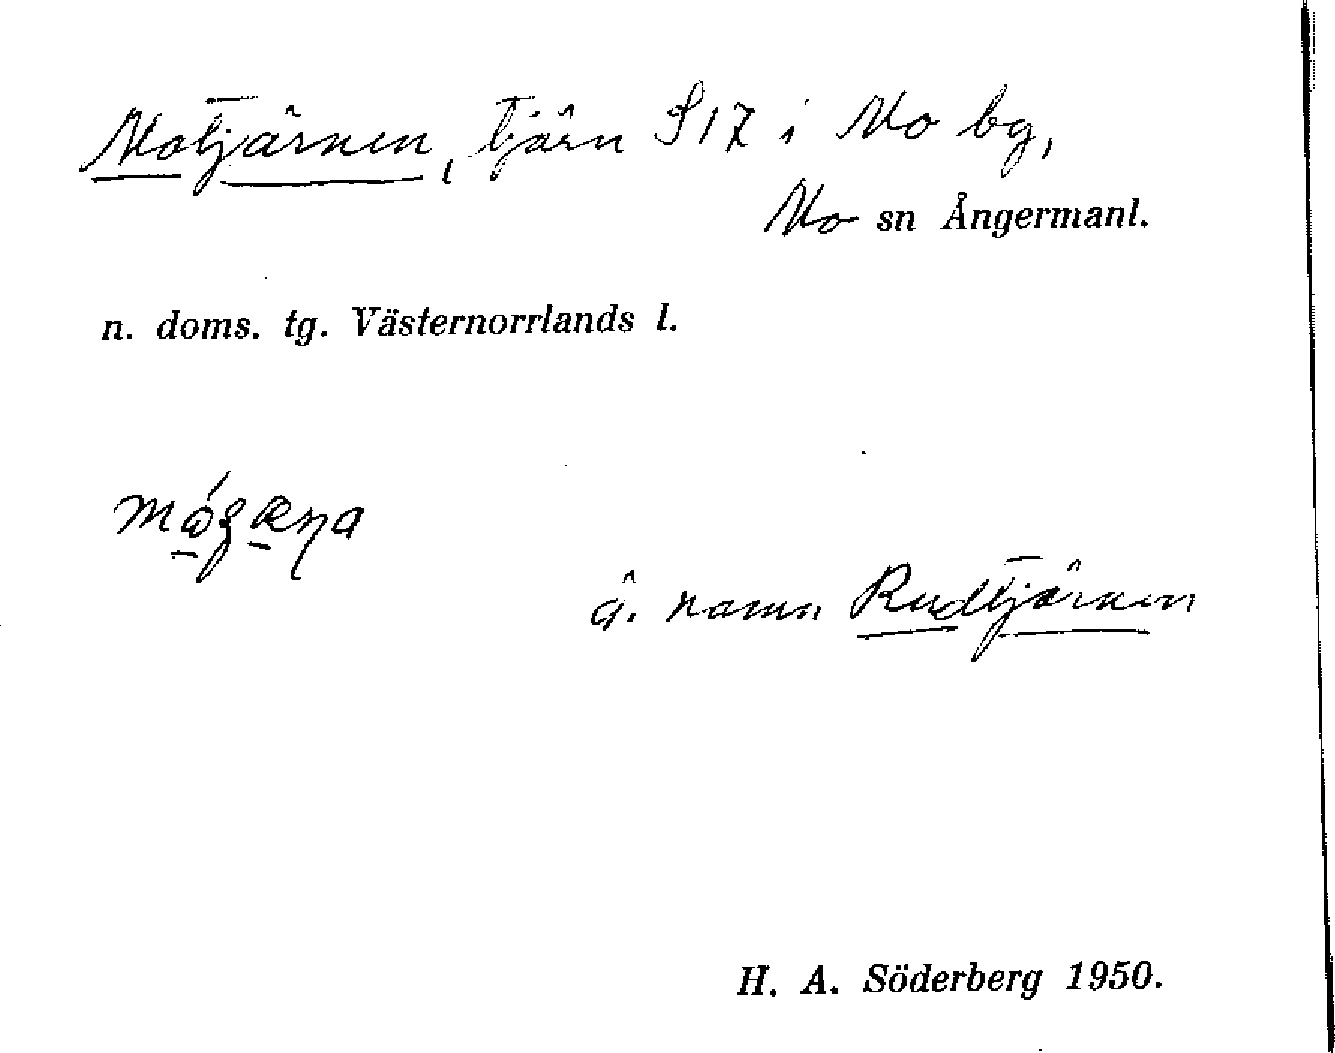 Motjärnen, tjärn S 17 i Mo bg,
Mo sn Ångermanl.
n. doms. tg. Västernorrlands l.
ä. namn Rudtjärnen
H. A. Söderberg 1950.